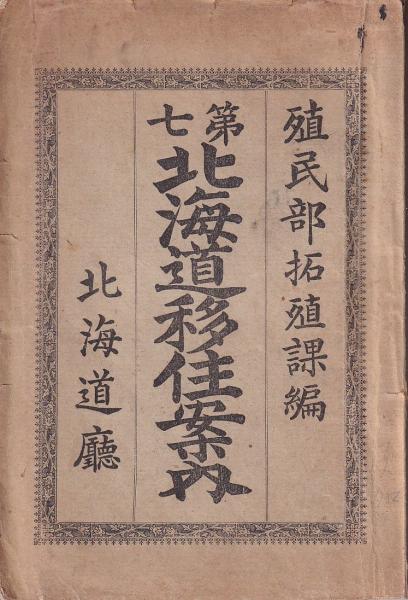 殖民部拓殖課編
第七
北海道移住案内
北海道廳